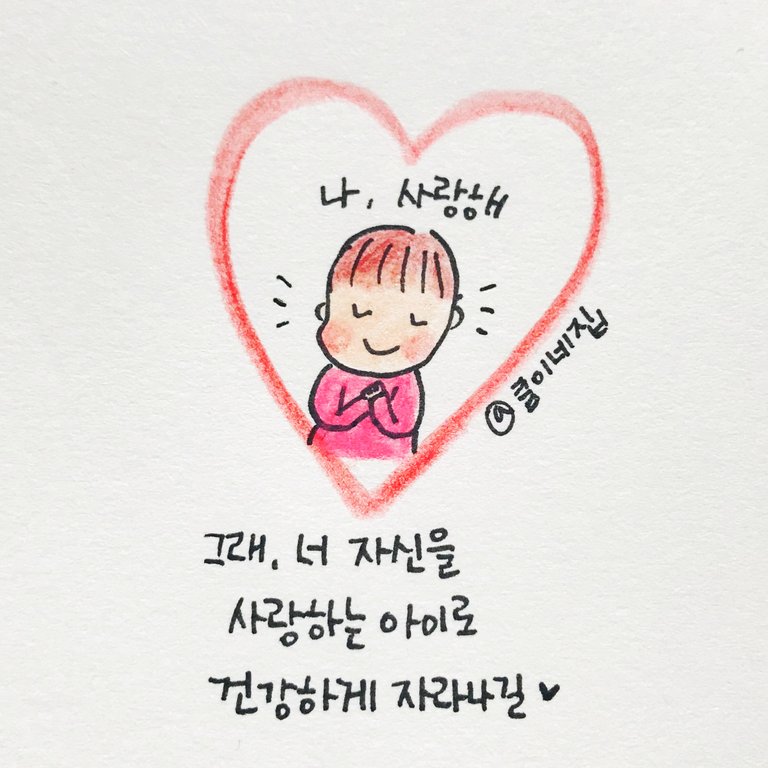 나, 사랑해
@쫍이네집
그래, 너 자신을
사랑하는 아이로
건강하게 자라나길♥